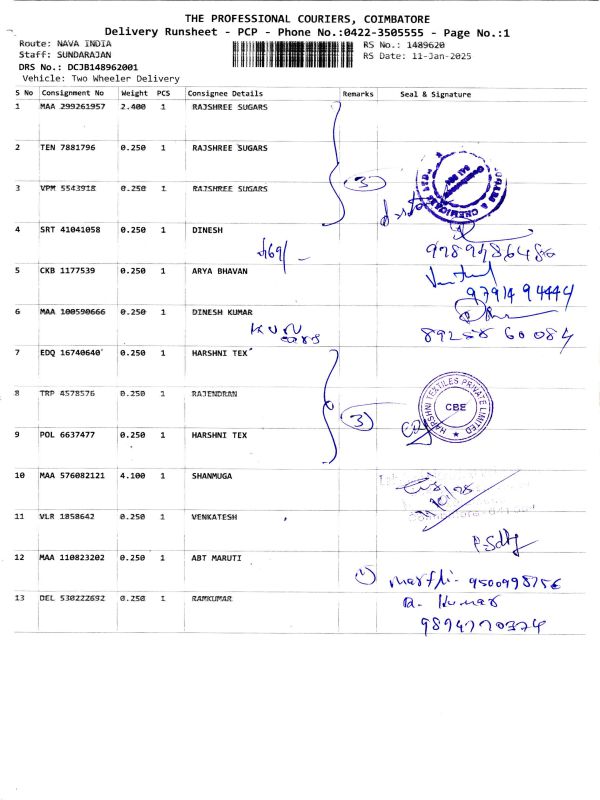 THE PROFESSIONAL COURIERS, COIMBATORE
Delivery Runsheet - PCP - Phone No.:0422-3505555 - Page No.:1
Route: NAVA INDIA
RS No.: 1489620
Staff: SUNDARAJAN
RS Date: 11-Jan-2025
DRS No.: DCJB148962001
Vehicle: Two Wheeler Delivery
S No Consignment No Weight PCS Consignee Details Remarks Seal & Signature
1 MAA 299261957 2.400 1 RAJSHREE SUGARS
2 TEN 7881796 0.250 1 RAJSHREE SUGARS
3 VPM 5543918 0.250 1 RAJSHREE SUGARS
3
4 SRT 41041058 0.250 1 DINESH
5 CKB 1177539 0.250 1 ARYA BHAVAN
97914 94444
6 MAA 100590666 0.250 1 DINESH KUMAR
89258 60084
7 EDQ 16740640 0.250 1 HARSHNI TEX
8 TRP 4578576 0.250 1 RAJENDRAN
HARSHNI TEXTILES PRIVATE LIMITED
CBE
3
9 POL 6637477 0.250 1 HARSHNI TEX
10 MAA 576082121 4.100 1 SHANMUGA
11 VLR 1858642 0.250 1 VENKATESH
12 MAA 110823202 0.250 1 ABT MARUTI
9500998756
13 DEL 530222692 0.250 1 RAMKUMAR
R. Kumar
9894770374